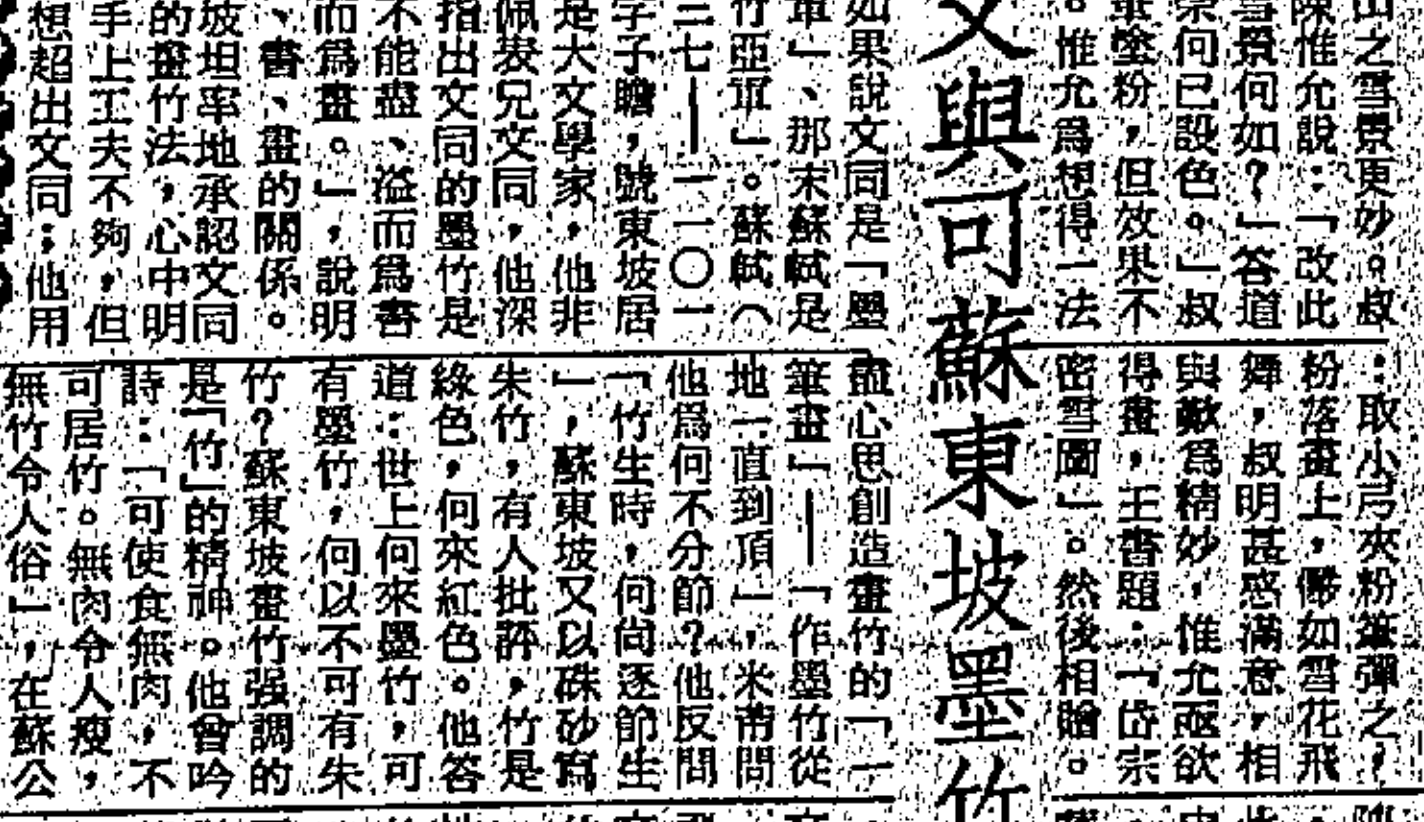 山之雪景更妙。叔
陳惟允說：「改此
雪景何如？」答道
奈何已設色。」叔
筆墜粉，但效果不
。惟允爲想得一法
：取小弓夾粉筆彈之，
粉落畫上，儼如雪花飛
舞，叔明甚感滿意，相
與歎爲精妙，惟允亟欲
得畫，王書題：「岱宗
密雪圖」。然後相贈。
文與可蘇東坡墨竹
如果說文同是「墨
軍」、那末蘇軾是
竹亞軍」。蘇軾（
三七——一一〇一
字子瞻，號東坡居
是大文學家，他非
佩表兄文同，他深
指出文同的墨竹是
不能盡、溢而爲書
而爲畫。」，說明
、書、畫的關係。
坡坦率地承認文同
的畫竹法，心中明
手上工夫不夠，但
想超出文同；他用
盡心思創造畫竹的「一
筆畫」——「作墨竹從
地一直到頂」，米芾問
他爲何不分節？他反問
「竹生時，何尚逐節生
」，蘇東坡又以硃砂寫
朱竹，有人批評，竹是
綠色，何來紅色。他答
道：世上何來墨竹，可
有墨竹，何以不可有朱
竹？蘇東坡畫竹强調的
是「竹」的精神。他曾吟
詩：「可使食無肉，不
可居竹。無肉令人瘦，
無竹令人俗」，在蘇公